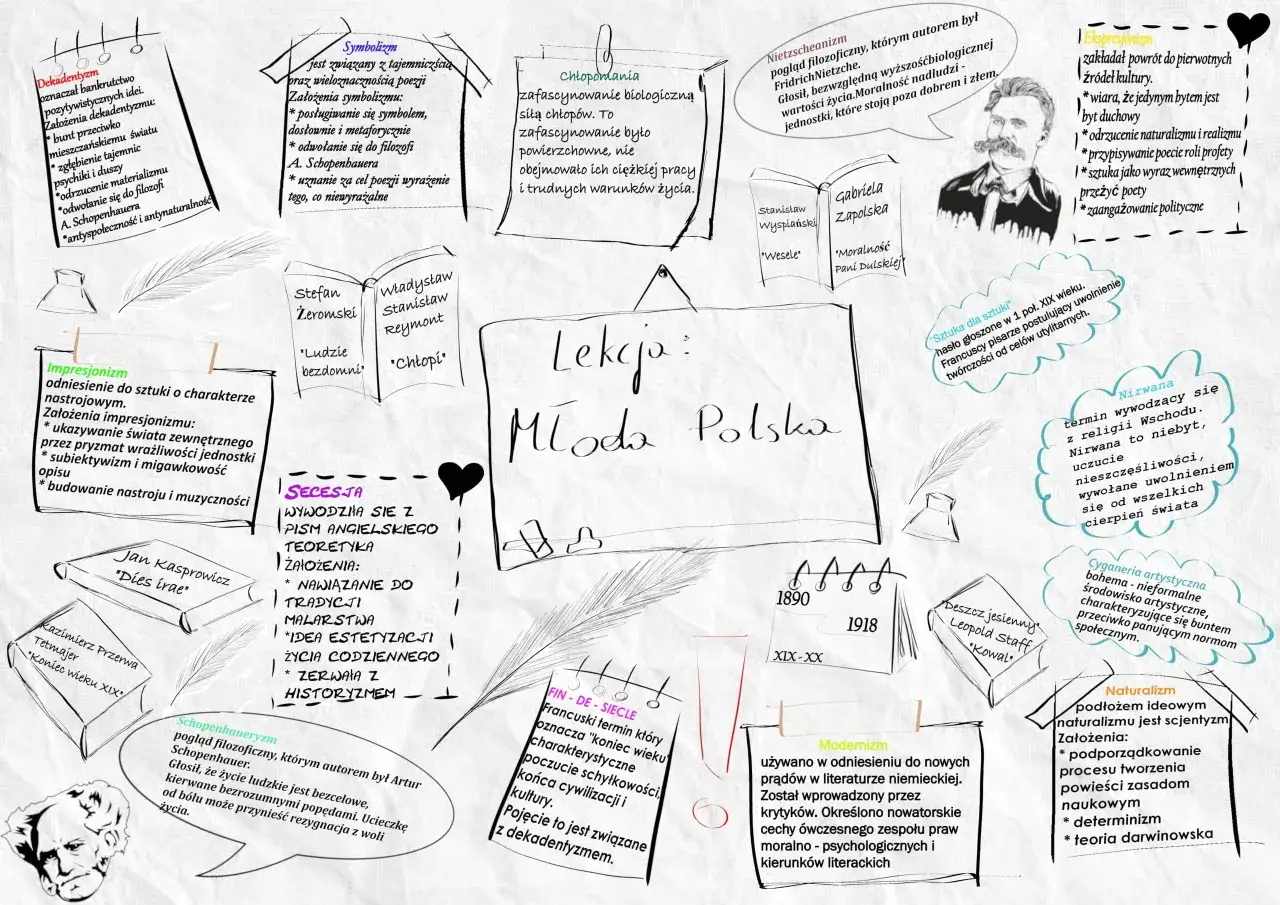 Dekadentyzm
oznaczał bankructwo
pozytywistycznych idei.
Założenia dekadentyzmu:
* bunt przeciwko
mieszczańskiemu światu
* zgłębienie tajemnic
psychiki i duszy
*odrzucenie materializmu
*odwołanie się do filozofi
A. Schopenhauera
*antyspołeczność i antynaturalność
Symbolizm
jest związany z tajemniczścią
oraz wieloznacznością poezji
Założenia symbolizmu:
* posługiwanie się symbolem,
dosłownie i metaforycznie
* odwołanie się do filozofi
A. Schopenhauera
* uznanie za cel poezji wyrażenie
tego, co niewyrażalne
Chłopomania
zafascynowanie biologiczną
siłą chłopów. To
zafascynowanie było
powierzchowne, nie
obejmowało ich ciężkiej pracy
i trudnych warunków życia.
Nietzscheanizm
pogląd filozoficzny, którym autorem był
FridrichNietzche.
Głosił, bezwzględną wyższośćbiologicznej
wartości życia.Moralność nadludzi -
jednostki, które stoją poza dobrem i złem.
Ekspresjonizm
zakładał powrót do pierwotnych
źródeł kultury.
* wiara, że jedynym bytem jest
byt duchowy
* odrzucenie naturalizmu i realizmu
* przypisywanie poecie roli profety
* sztuka jako wyraz wewnętrznych
przeżyć poety
* zaangażowanie polityczne
Stanisław
Wyspiański
"Wesele"
Gabriela
Zapolska
"Moralność
Pani Dulskiej"
Stefan
Żeromski
"Ludzie
bezdomni"
Władysław
Stanisław
Reymont
"Chłopi"
Lekcja:
Młoda Polska
"Sztuka dla sztuki"
hasło głoszone w 1 poł. XIX wieku.
Francuscy pisarze postulujący uwolnienie
twórczości od celów utylitarnych.
Nirwana
termin wywodzący się
z religii Wschodu.
Nirwana to niebyt,
uczucie
nieszczęśliwości,
wywołane uwolnieniem
się od wszelkich
cierpień świata
Impresjonizm
odniesienie do sztuki o charakterze
nastrojowym.
Założenia impresjonizmu:
* ukazywanie świata zewnętrznego
przez pryzmat wrażliwości jednostki
* subiektywizm i migawkowość
opisu
* budowanie nastroju i muzyczności
Secesja
wywodziła sie z
pism angielskiego
teoretyka
Założenia:
* nawiązanie do
tradycji
malarstwa
*idea estetyzacji
życia codziennego
* zerwała z
historyzmem
Jan Kasprowicz
"Dies irae"
Kazimierz Przerwa
Tetmajer
"Koniec wieku XIX"
1890
1918
XIX - XX
Deszcz jesienny"
Leopold Staff
"Kowal"
Cyganeria artystyczna
bohema - nieformalne
środowisko artystyczne,
charakteryzujące się buntem
przeciwko panującym normom
społecznym.
Schopenhaueryzm
pogląd filozoficzny, którym autorem był Artur
Schopenhauer.
Głosił, że życie ludzkie jest bezcelowe,
kierwane bezrozumnymi popędami. Ucieczkę
od bólu może przynieść rezygnacja z woli
życia.
FIN - DE - SIECLE
Francuski termin który
oznacza "koniec wieku"
charakterystyczne
poczucie schyłkowości,
końca cywilizacji i
kultury.
Pojęcie to jest związane
z dekadentyzmem.
Modernizm
używano w odniesieniu do nowych
prądów w literaturze niemieckiej.
Został wprowadzony przez
krytyków. Określono nowatorskie
cechy ówczesnego zespołu praw
moralno - psychologicznych i
kierunków literackich
Naturalizm
podłożem ideowym
naturalizmu jest scjentyzm
Założenia:
* podporządkowanie
procesu tworzenia
powieści zasadom
naukowym
* determinizm
* teoria darwinowska